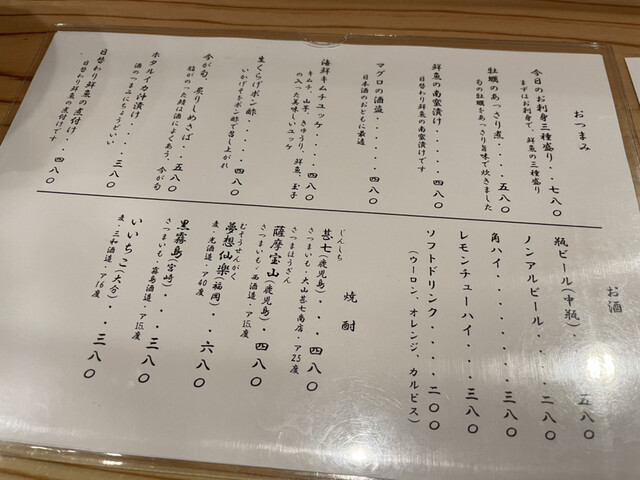 おつまみ
今日のお刺身三種盛り・・七八〇
まずはお刺身で、鮮魚の三種盛り
牡蠣のあっさり煮・・・・五八〇
旬の牡蠣をあっさり旨味で炊きました
鮮魚の南蛮漬け・・・・・四八〇
日替わり鮮魚の南蛮漬けです
マグロの酒盗・・・・・・四八〇
日本酒のおともに最適
海鮮キムチユッケ・・・・四八〇
キムチ、山芋、きゅうり、鮮魚、玉子
の入った美味しいユッケ
生くらげポン酢・・・・・四八〇
いかげそをポン酢で召し上がれ
今が旬、炙りしめさば・・五八〇
脂がのった鯖は酒によくあう、今が旬
ホタルイカ沖漬け・・・・三八〇
酒のつまみにちょうどいい
日替わり鮮魚の煮付け・・四八〇
日替わり鮮魚の煮付けです
お酒
瓶ビール(中瓶)・・・・五八〇
ノンアルビール・・・・・二八〇
角ハイ・・・・・・・・・三八〇
レモンチューハイ・・・・三八〇
ソフトドリンク・・・・・二〇〇
(ウーロン、オレンジ、カルピス)
焼酎
じんしち
甚七(鹿児島)・・・・四八〇
さつまいも・大山甚七商店・ア25度
さつまほうざん
薩摩宝山(鹿児島)・・四八〇
さつまいも・西酒造・ア25度
むそうせんがく
夢想仙楽(福岡)・・・六八〇
麦・光酒造・ア40度
黒霧島(宮崎)・・・・三八〇
さつまいも・霧島酒造・ア25度
いいちこ(大分)・・・三八〇
麦・三和酒造・ア16度